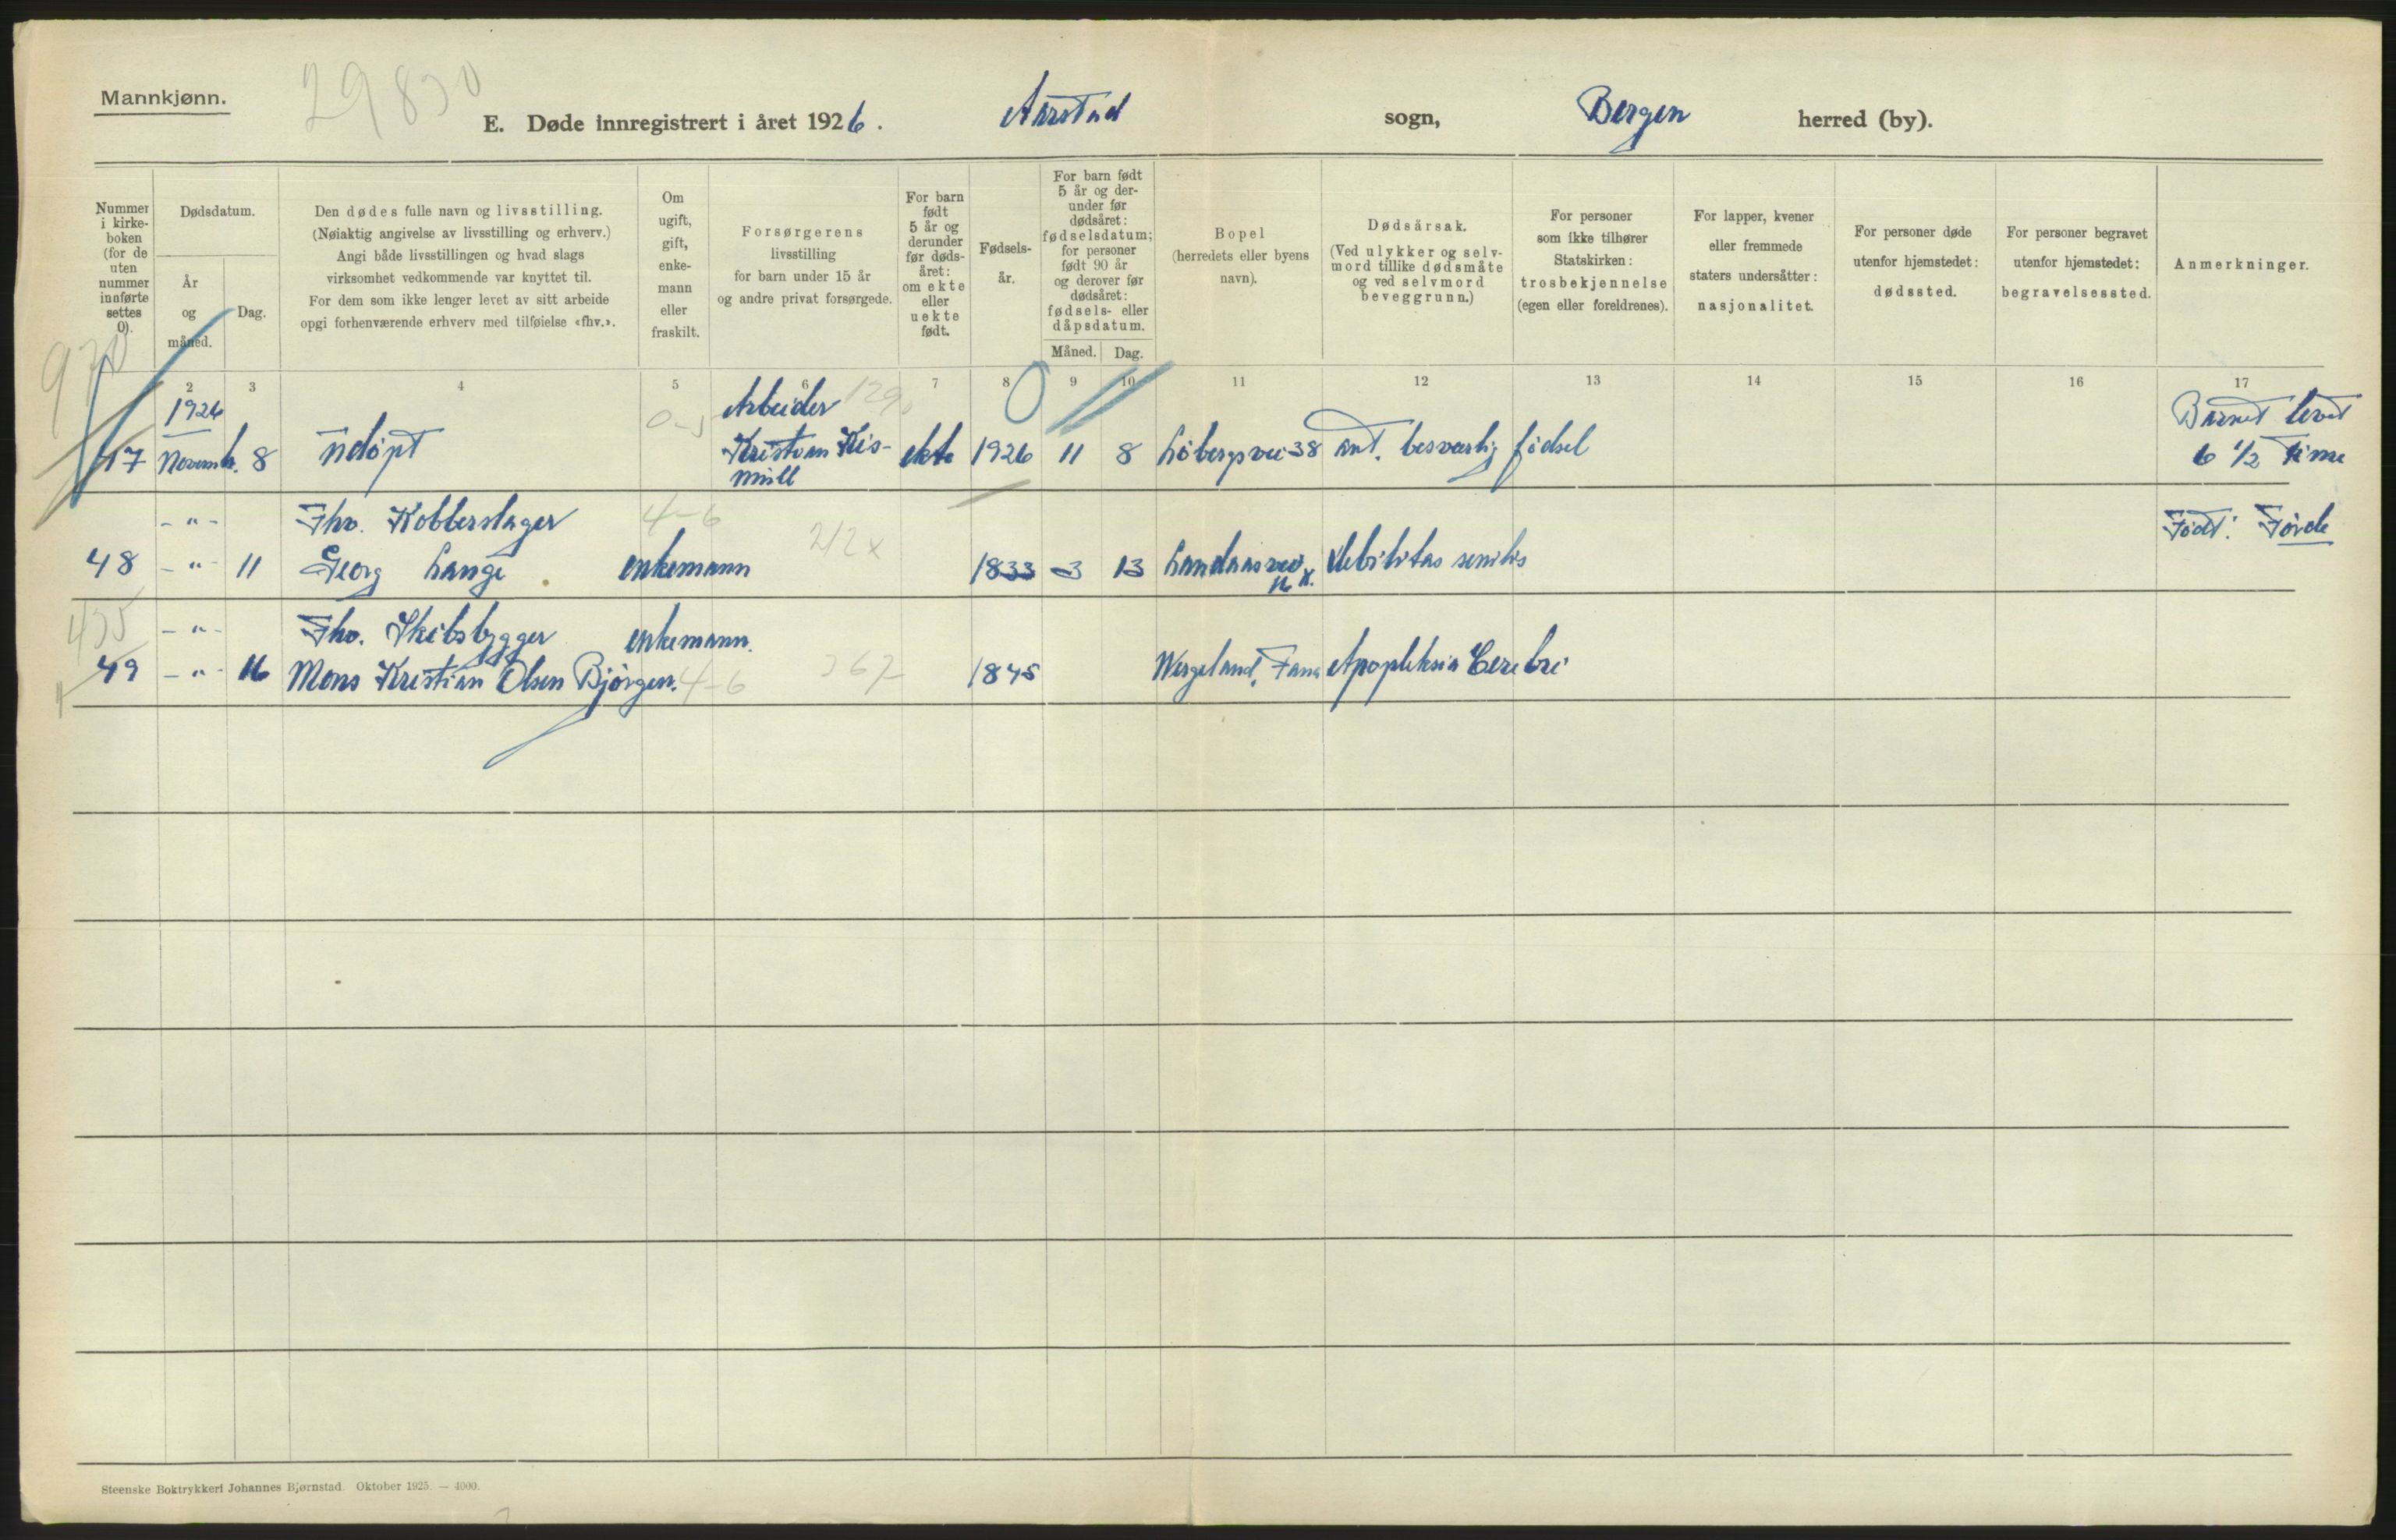 Mannkjønn.
29830
E. Døde innregistrert i året 1926. Aarstad sogn, Bergen herred (by).
Nummer i kirke- boken (for de uten nummer innførte settes 0).
Dødsdatum.
År og måned.
Dag.
Den dødes fulle navn og livsstilling.
(Nøiaktig angivelse av livsstilling og erhverv.)
Angi både livsstillingen og hvad slags
virksomhet vedkommende var knyttet til.
For dem som ikke lenger levet av sitt arbeide
opgi forhenværende erhverv med tilføielse «fhv.».
Om ugift, gift, enke- mann eller fraskilt.
Forsørgerens
livsstilling
for barn under 15 år
og andre privat forsørgede.
For barn født 5 år og derunder før døds- året: om ekte eller uekte født.
Fødsels- år.
For barn født 5 år og der- under før dødsåret: fødselsdatum; for personer født 90 år og derover før dødsåret: fødsels- eller dåpsdatum.
Måned. Dag.
Bopel
(herredets eller byens
navn).
Dødsårsak.
(Ved ulykker og selv-
mord tillike dødsmåte
og ved selvmord
beveggrunn.)
For personer
som ikke tilhører
Statskirken:
trosbekjennelse
(egen eller foreldrenes).
For lapper, kvener
eller fremmede
staters undersåtter:
nasjonalitet.
For personer døde
utenfor hjemstedet:
dødssted.
For personer begravet
utenfor hjemstedet:
begravelsessted.
Anmerkninger.
2 3 4 5 6 7 8 9 10 11 12 13 14 15 16 17
1926 Arbeider 129 0 Barnet levet
970 0-5
47 Novemb. 8 Udøpt Kristian Mis- ekte 1926 11 8 Løbergsvei 38 ant. besværlig fødsel 6 1/2 Time
müll
- " - Fhv. Kobberslager 4-6 212x Født: Førde
48 - " - 11 Georg Lange . enkemann 1833 3 13 Landaasvei debilitas senilis
435 - " - Fhv. Skibsbygger enkemann.
49 - " - 16 Mons Kristian Olsen Bjørgen. 4-6 367 1845 Wergeland, Fana Apopleksia Cerebri
Steenske Boktrykkeri Johannes Bjørnstad. Oktober 1925. — 4000.